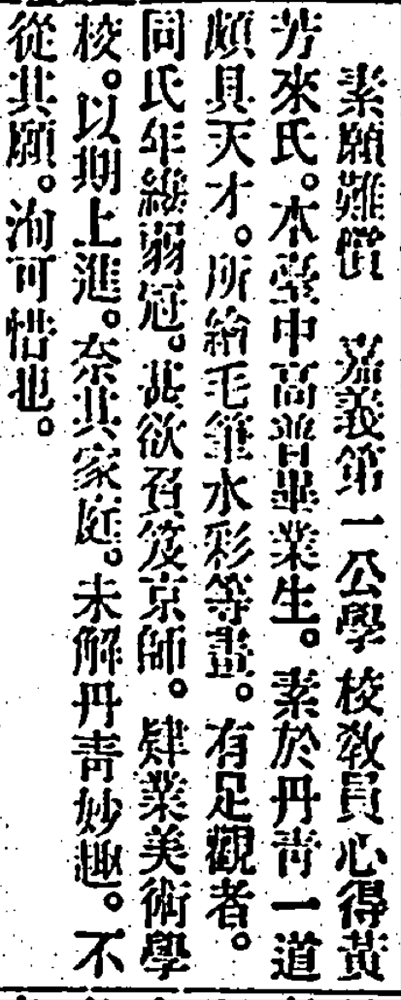 素願難償　嘉義第一公學校教員心得黃
芳來氏。本臺中高普畢業生。素於丹青一道
頗具天才。所繪毛筆水彩等畫。有足觀者。
同氏年纔弱冠。甚欲負笈京師。肄業美術學
校。以期上進。奈其家庭。未解丹青妙趣。不
從其願。洵可惜也。